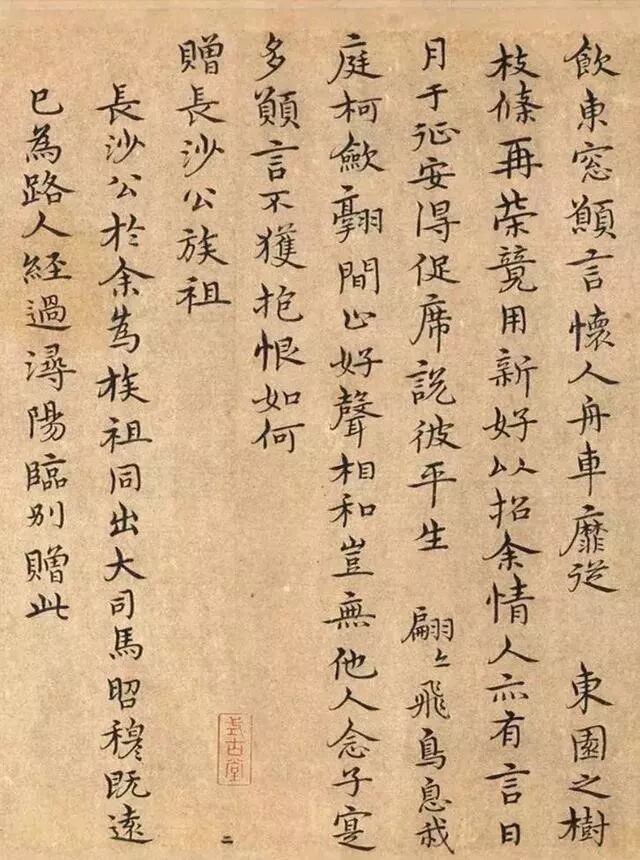 飲東窓願言懷人舟車靡從　東園之樹
枝條再榮競用新好以招余情人亦有言日
月于征安得促席說彼平生　翩〻飛鳥息我
庭柯歛翮間止好聲相和豈無他人念子寔
多願言不獲抱恨如何
贈長沙公族祖
長沙公於余為族祖同出大司馬昭穆既遠
已為路人經過潯陽臨別贈此
式古堂
二